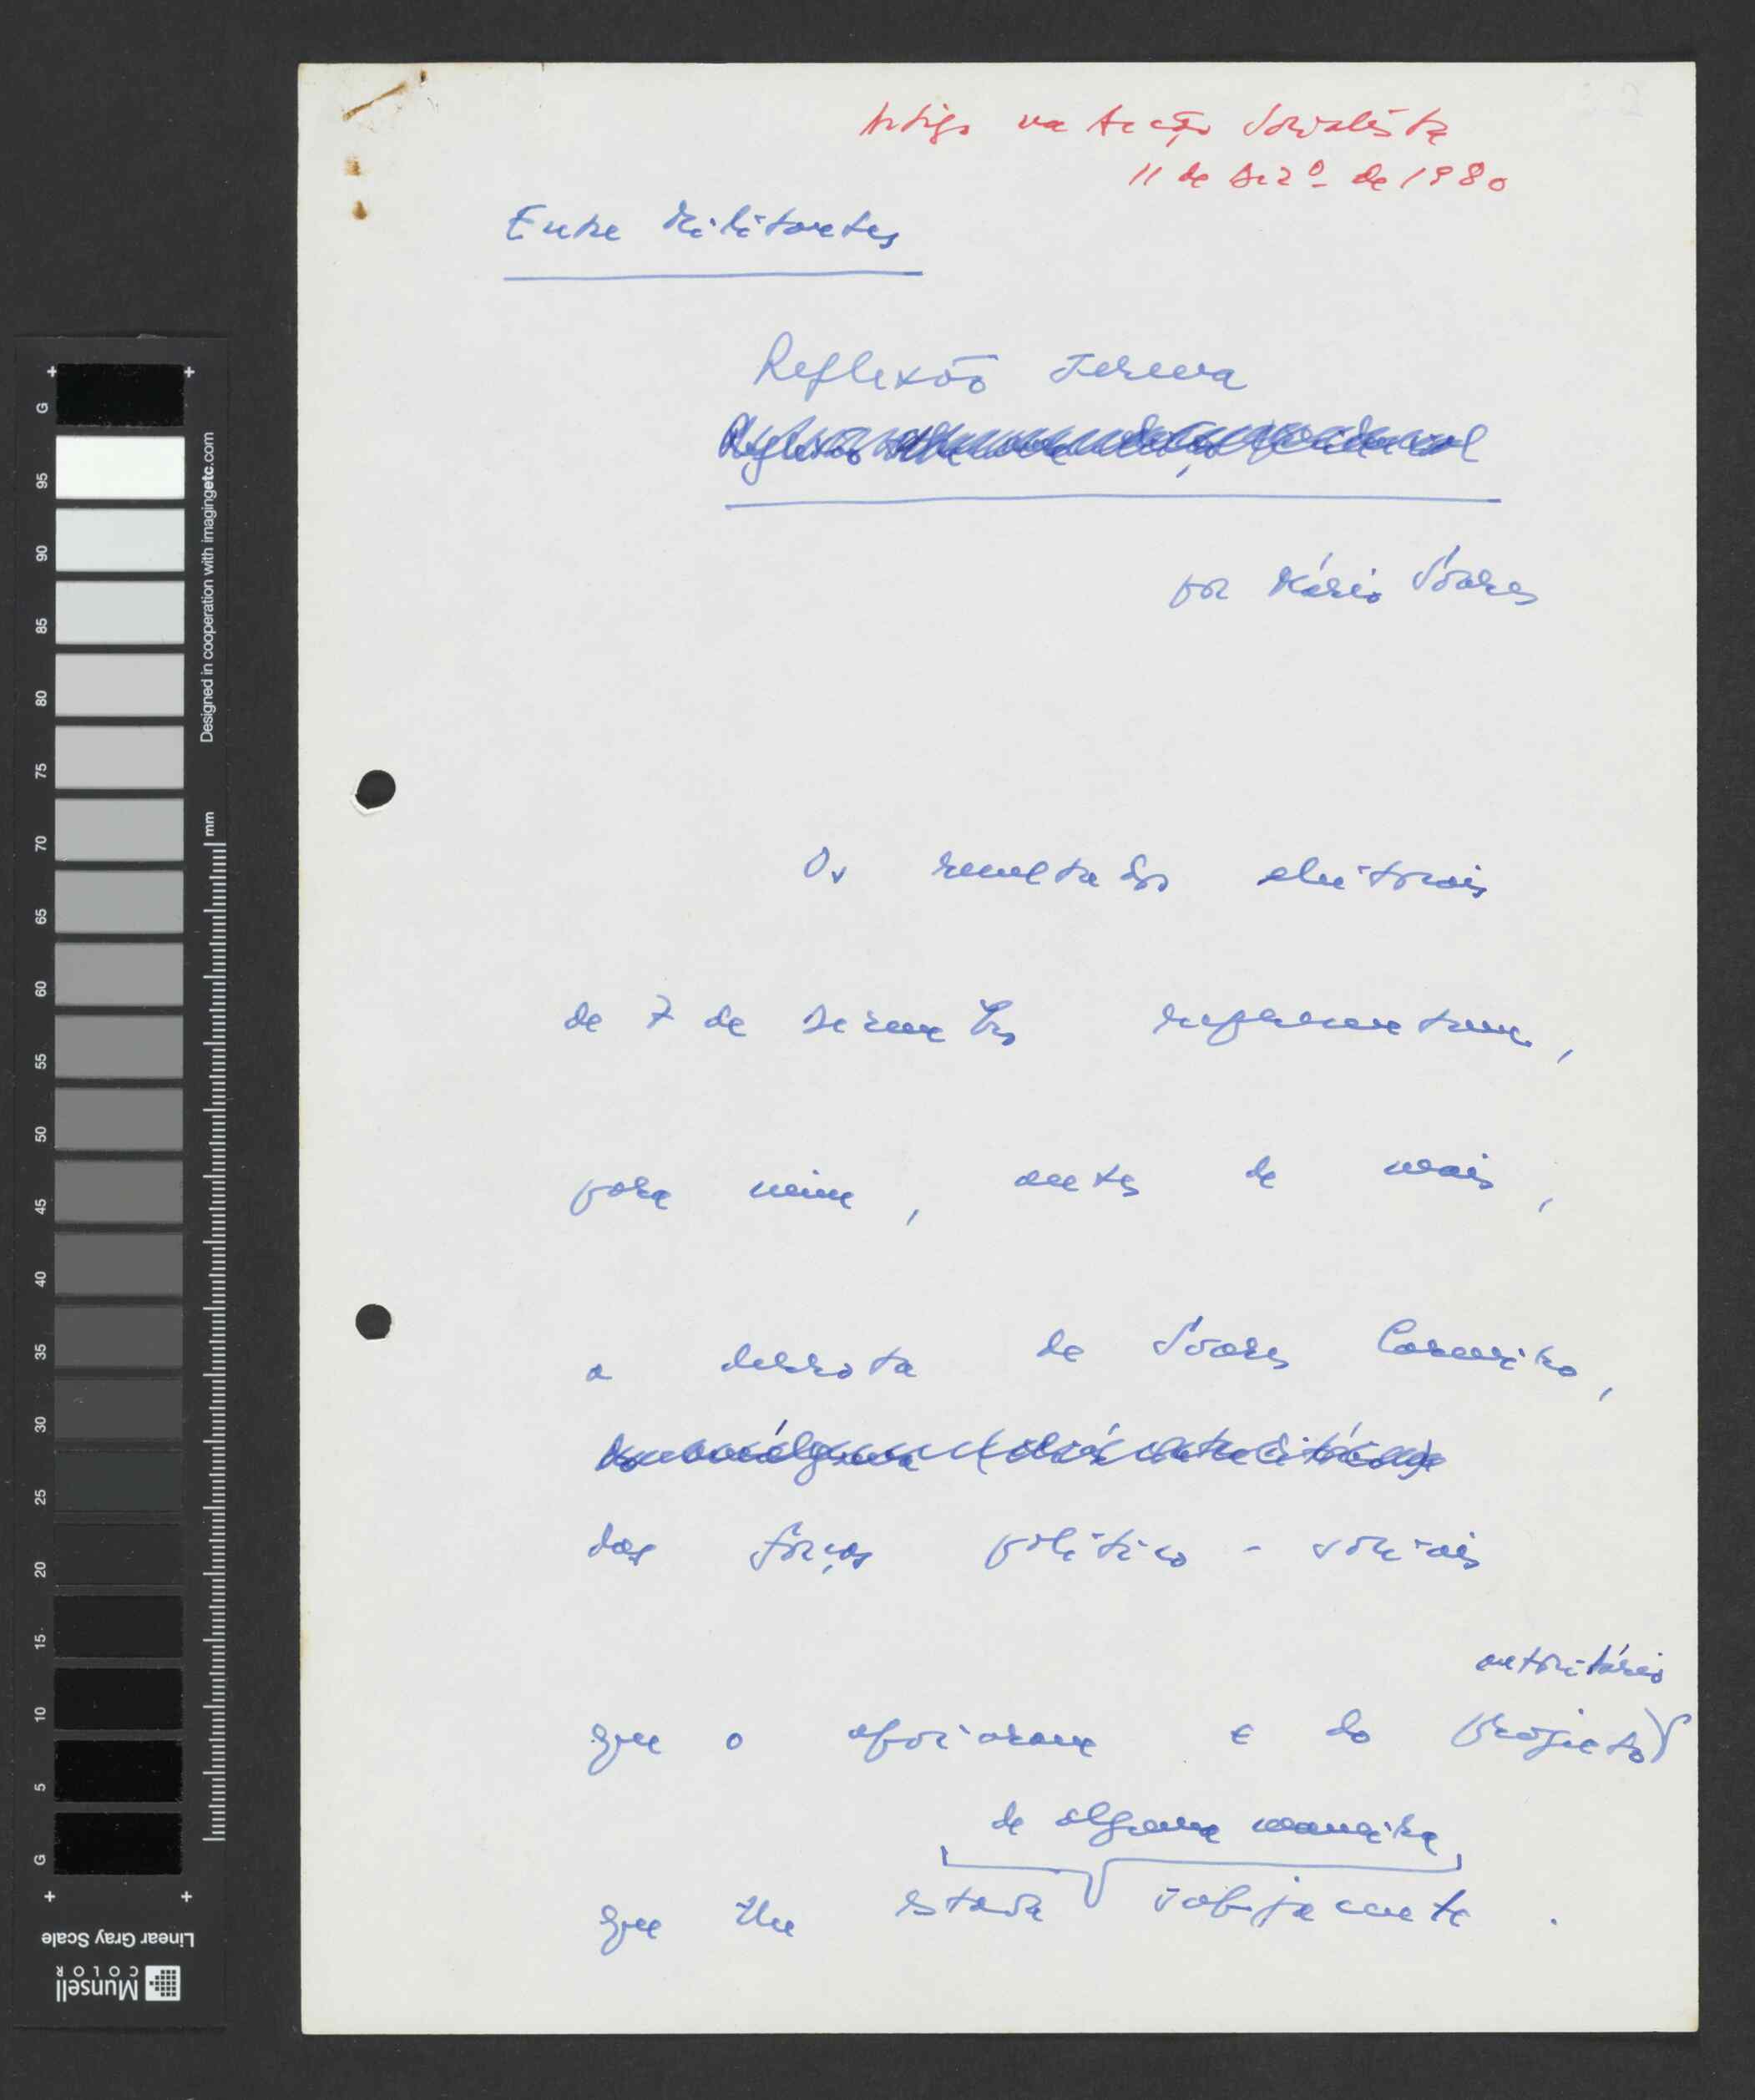 Artigo na Acção Socialista
11 de Dezº de 1980
Entre Militantes
Reflexão serena
por Mário Soares
Os resultados eleitorais
de 7 de Dezembro representam,
para mim, antes de mais,
a derrota de Soares Carneiro,
das forças político-sociais
autoritário
que o apoiaram e do projecto
de alguma maneira
que lhe estava subjacente.
G
95
90
85
80
75
70
65
60
55
50
45
40
35
30
25
20
15
10
5
G
Designed in cooperation with imagingetc.com
mm
Linear Gray Scale
Munsell
COLOR